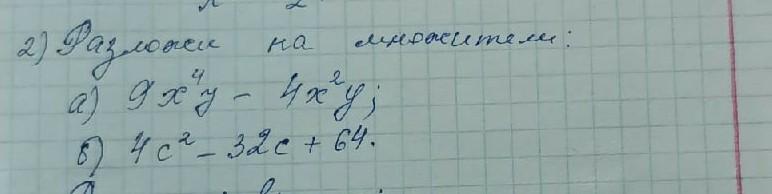 2) Разложи на множители:
а) 9x⁴y - 4x²y;
б) 4c² - 32c + 64.